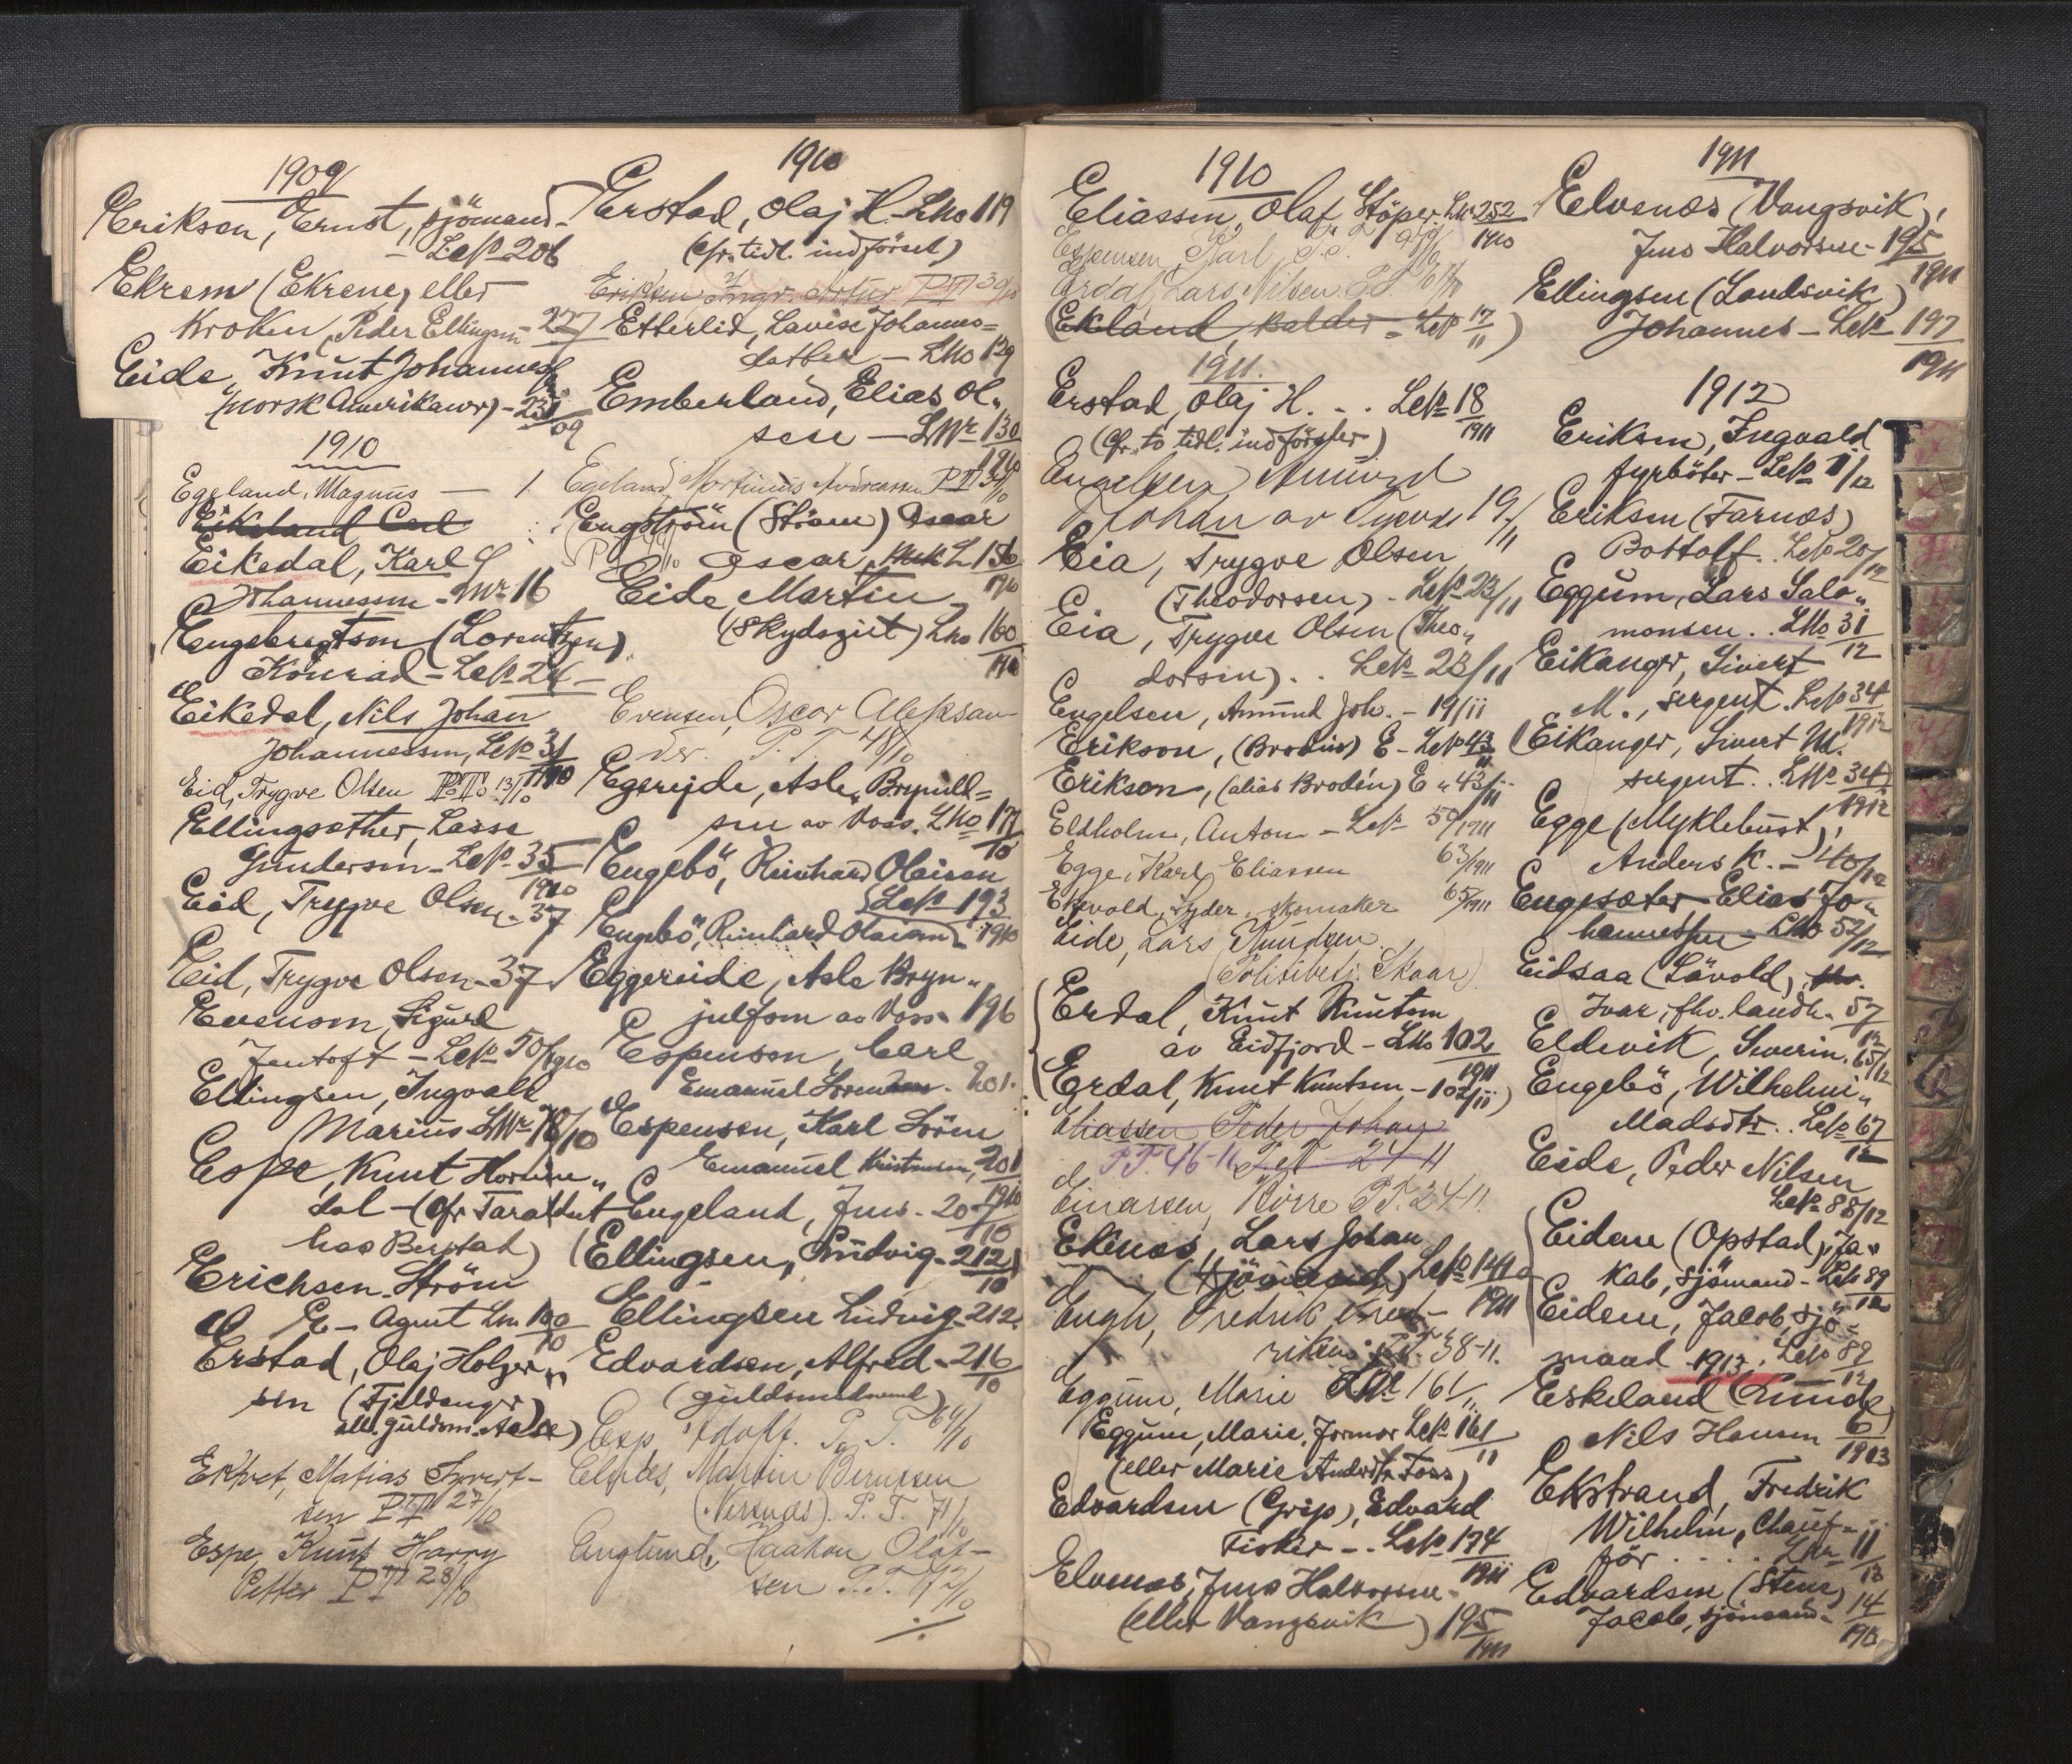 1909
Erikson, Ernst, sjömand -
- Lek 206
Ekrem (Ekrene, eller
Kroken, Peder Ellingsen - 227
Eide, Knut Johannes
(norsk Amerikanr) - 231
09
1910
Egeland, Magnus — 1
Eikeland Carl
Eikedal, Karl
Johannessen - Nr 16
Engebregtson (Lorentzen)
Konrad - Lek 24 -
Eikedal, Nils Johan
Johannessen, Lek 31
1910
Eid, Trygve Olsen P.T. 13/10
Ellingsæther, Lasse
Gunderson - Lek 35
1910
Eid, Trygve Olsen - 37
Eid, Trygve Olsen - 37
Evenson, Sigurd
Jentoft - Lek 50/1910
Ellingsen, Ingvald
Marius LNr 78/10
Espe, Knut Hornin„
dal - (cfr Taraldset
hos Berstad)
Erichsen-Ström
E - Agent Lnr 100
10
Erstad, Olaj Holger„
sen (Fjeldanger)
all. guldsm. Aase)
Eknet, Matias Syvert-
sen PT 27/10
Espe, Knut Harry
Petter PT 28/10
1910
Erstad, Olaj H. LNo 119
(cfr. tidl. indförsel)
Eriksen Ingv. Artur PT 30/10
Etterlid, Lavise Johannes=
datter — LNo 129
Emberland, Elias Ol„
sen — LNr 130
1910
Egeland, Martinius Andreassen PT 34/10
Engström (Ström) Oscar
Oscar, L 156
1910
Eide, Martin
(Skydsgut) LNo 160
1910
Evensen, Oscar Aleksan-
der. P.T. 48/10
Egereide, Asle, Brynild=
sen av Voss. LNo 177
10
Engebö, Reinhard Olaisen
Lek 193
Engebö, Reinhard Olaisen 1910
Eggereide, Asle Bryn„
julfsen av Voss 196
Espensen, Carl
Emanuel . 201.
Espensen, Karl Sören
Emanuel Kristensen, 201
1910
Engeland, Jens - 207
10
(Ellingsen, Ludvig - 212)
10
Ellingsen Ludvig - 212.
Edvardsen, Alfred - 216
10
(guldsmedsvend)
Esp, Adolf. P.T. 69/10
Elnes, Martin Berntsen
(Nersnes). P.T. 71/10
Englund, Haakon Olaf-
sen P.T. 72/10
1910
Eliassen, Olaf Stöper LNr 252
1910
Espensen, Karl,
Erdal, Lars Nilsen.
(Ekland, Balder - Lek 17/11)
1911.
Erstad, Olaj H. . . Lek 18
1911
(cfr. to tidl. indförsler)
Engelsen, Amund
Johan av 19/11
Eia, Trygve Olsen
(Theodorsen) - Lek 23/11
Eia, Trygve Olsen (Theo„
dorsen) . . Lek 23/11
Engelsen, Amund Joh. - 19/11
Erikson, (Brodin) E - Lek 43
11
Erikson, (alias Brodin) E „ 43/11
Eldholm, Anton - Lek 59/1911
Egge, Karl Eliassen 63/1911
Egevold, Syder, skomaker 65/1911
Eide, Lars Knudsen.
(Politibetj. Skaar).
Erdal, Knut Knutsen
av Eidfjord - LNo 102
1911
Erdal, Knut Knutsen - 102/11)
Eliassen Peder Johan
P.T. 46-11 P.T. 24-11
Einarsen, Börre P.T. 24-11.
Elinas, Lars Johan
(sjömand) Lek 149
1911
Engh, Fredrik Fred-
riksen P.T. 38-11.
Eggum, Marie LNr 161
Eggum, Marie, formor Lek 161
11
(eller Marie Andrdtr Foss)
Edvardsen (Grip), Edvard
Fisker - . Lek 174
1911
Elvenes, Jens Halvorsen -
(eller Vangsvik) 195
1911
1911
Elvenæs (Vangsvik),
Jens Halvorsen - 195
1911
Ellingsen (Landsvik)
Johannes - Lek 197
1911
1912
Eriksen, Ingvald
fyrböter - Lek 1/12
Eriksen (Farnæs)
Bottolf . . Lek 20/12
Eggum, Lars Salo„
monsen . . LNo 31
12
Eikanger, Sivert
M., sergent . Lek 34
1912
(Eikanger, Sivert M.
sergent . . LNo 34)
1912
Egge (Myklebust),
Anders K. - 40/12
Engesæter Elias Jo„
hannessen - LNo 52/12
Eidsaa (Lövold),
Ivar, fhv. landh. 57
12
Eldevik, Severin. 65/12
Engebö, Wilhelmi„
Madsdtr . . Lek 67
12
Eide, Peder Nilsen
Lek 88/12
Eidem (Opstad), Ja„
kob, sjömand - Lek 89
12
Eidem, Jacob, sjö-
mand . Lek 89
12
1913
Eskeland (Lunde)
Nils Hansen 6
1913
Ekstrand, Fredrik
Wilhelm, Chauf-
för . . . . LNr 11
13
Edvardsen (Stene)
Jacob, sjömand - 14
1913